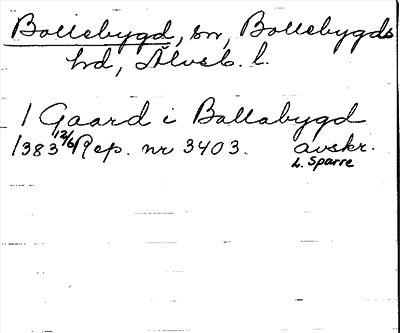 Bollebygd, sn, Bollebygds
hd, Älvsb. l.
1 Gaard i Ballabygd
1383 12/6 Rep. nr 3403. avskr.
L. Sparre